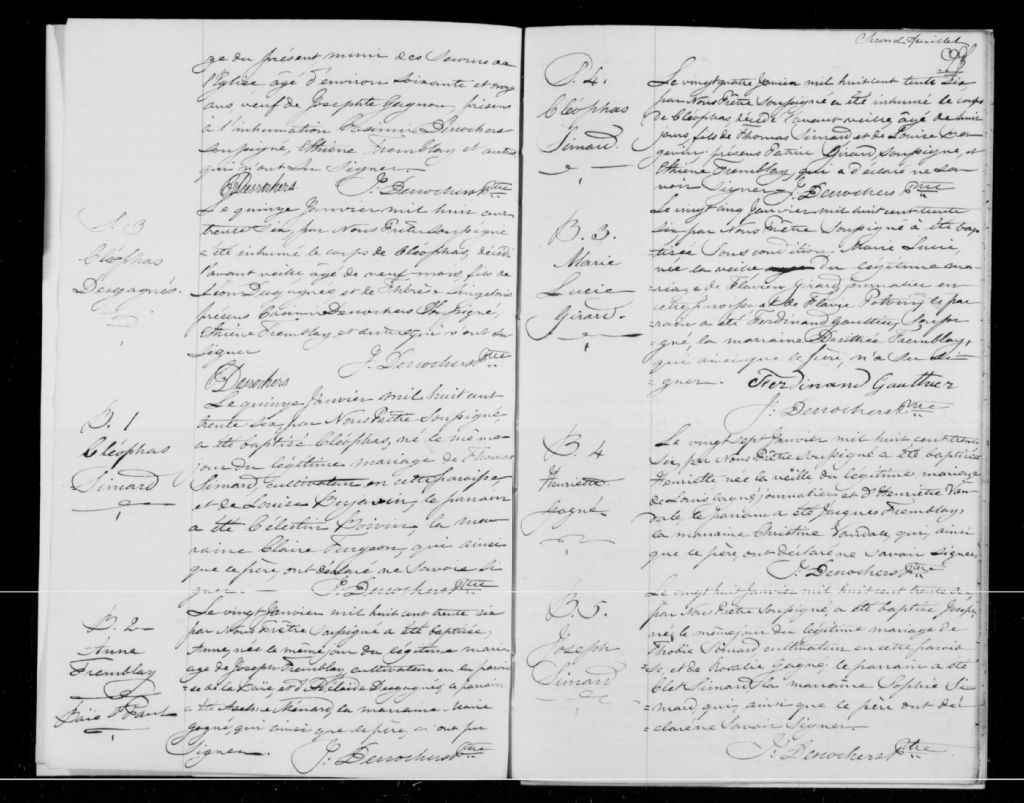 ge du présent muni des Secours de
l'Eglise âgé d'environ soixante et onze
ans veuf de Josephte Gagnon, présens
à l'inhumation Casimir Desrochers
soussigné, Ethiène Tremblay et autres
qui n'ont su signer
CDesrochers J. Desrochers Ptre
S. 3
Cléophas
Desgagnés.
Le quinze Janvier mil huit cent
trente six, par Nous Prêtre soussigné
a été inhumé le corps de Cléophas, décédé
l'avant veille agé de neuf mois, fils de
Léon Desgagnés et de
présens Casimir Desrochers Soussigné,
Ethiène Tremblay et autres qui n'ont su
signer
J. Desrochers Ptre
CDesrochers
B. 1
Cléophas
Simard
Le quinze Janvier mil huit cent
trente six, par Nous Prêtre Soussigné,
a été baptisé Cléophas, né le même
jour du légitime mariage de Thomas
Simard cultivateur en cette paroisse
et de Louise, le parrain
a été Célestin Boivin, la mar
raine Claire Furgson, qui ainsi
que le père, ont déclaré ne Savoir Si
gner. J. Desrochers Ptre
B. 2
Anne
Tremblay
Baie St Paul
Le vingt Janvier mil huit cent trente six
par Nous Prêtre Soussigné a été baptisée,
Anne née le même jour du légitime mari
age de Joseph Tremblay, cultivateur en la parois
se de la Baie, et d'Adélaïde Desgagnés, le parrain
a été Ménard, la marraine Marie
Gagné, qui ainsi que le père, n'ont pu
Signer. J. Desrochers Ptre
Second feuillet
S. 4.
Cléophas
Simard.
Le vingt quatre Janvier mil huit cent trente six,
par Nous Prêtre Soussigné a été inhumé le corps
de Cléophas, décédé l'avant veille, âgé de
jours, fils de Thomas Simard et de Louise
présens Patrice Girard, soussigné, et
Ethiène Tremblay, qui a déclaré ne Sa
voir Signer. J. Desrochers Ptre
B. 3.
Marie
Lucie
Girard.
Le vingt cinq Janvier mil huit cent trente
six par Nous Prêtre Soussigné a été bap
tisée Sous condition, Marie Lucie,
née la veille du légitime ma
riage de Flavien Girard, journalier en
cette paroisse et de Flavie Potvin, le par
rain a été Ferdinand Gauthier, Soussi
gné la marraine Dorothée Tremblay,
qui ainsi que le père, n'a Su Si
gner. Ferdinand Gauthier
J. Desrochers Ptre
B. 4
Henriette
Gagné
Le vingt sept Janvier mil huit cent trente
six, par Nous Prêtre Soussigné a été baptisée
Henriette née la veille du légitime mariage
de Louis Gagné journalier, et d'Henriette Van
dale, le parrain a été Jacques Tremblay,
la marraine Christine Vandale, qui, ainsi
que le père, ont déclaré ne savoir Signer,
J. Desrochers Ptre
B. 5.
Joseph
Simard
Le vingt huit Janvier mil huit cent trente six,
par Nous Prêtre Soussigné, a été baptisé Joseph,
né le même jour du légitime mariage de
Thobie Simard cultivateur en cette parois
se, et de Rosalie Gagné; le parrain a été
Simard, la marraine Sophie Si
mard, qui, ainsi que le père ont dé
claré ne Savoir Signer.
J. Desrochers Ptre